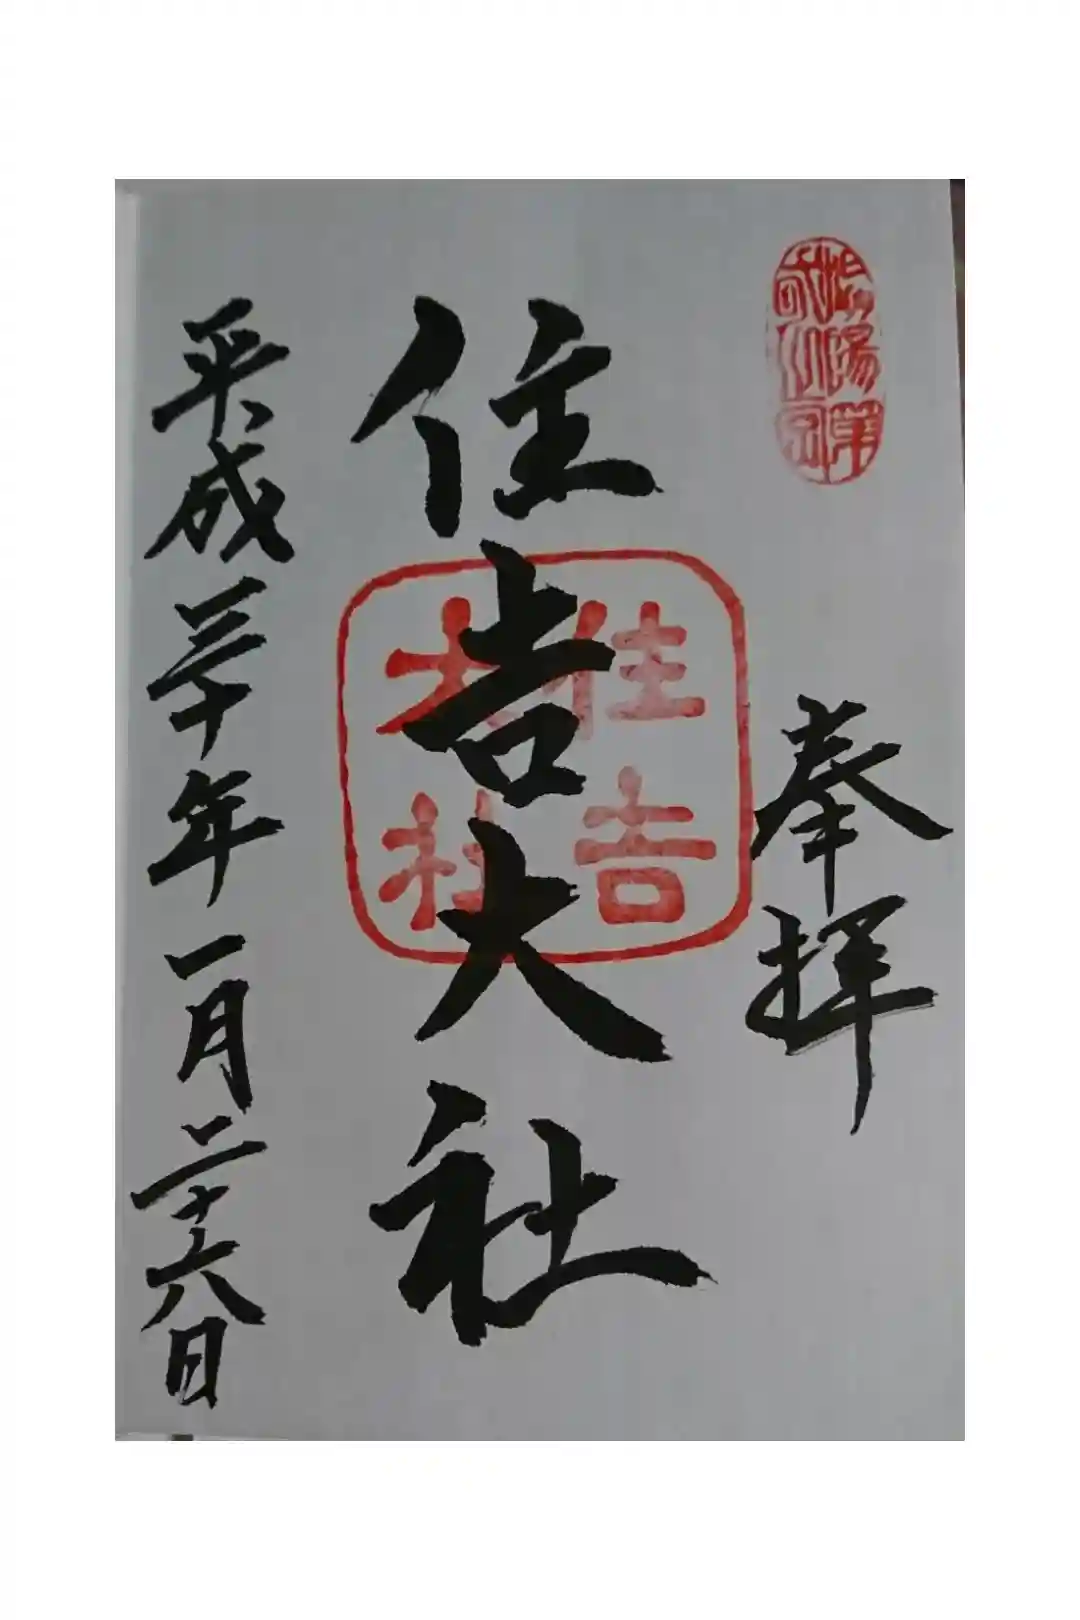 奉拝
住吉大社
住吉
大社
平成三十年一月二十六日